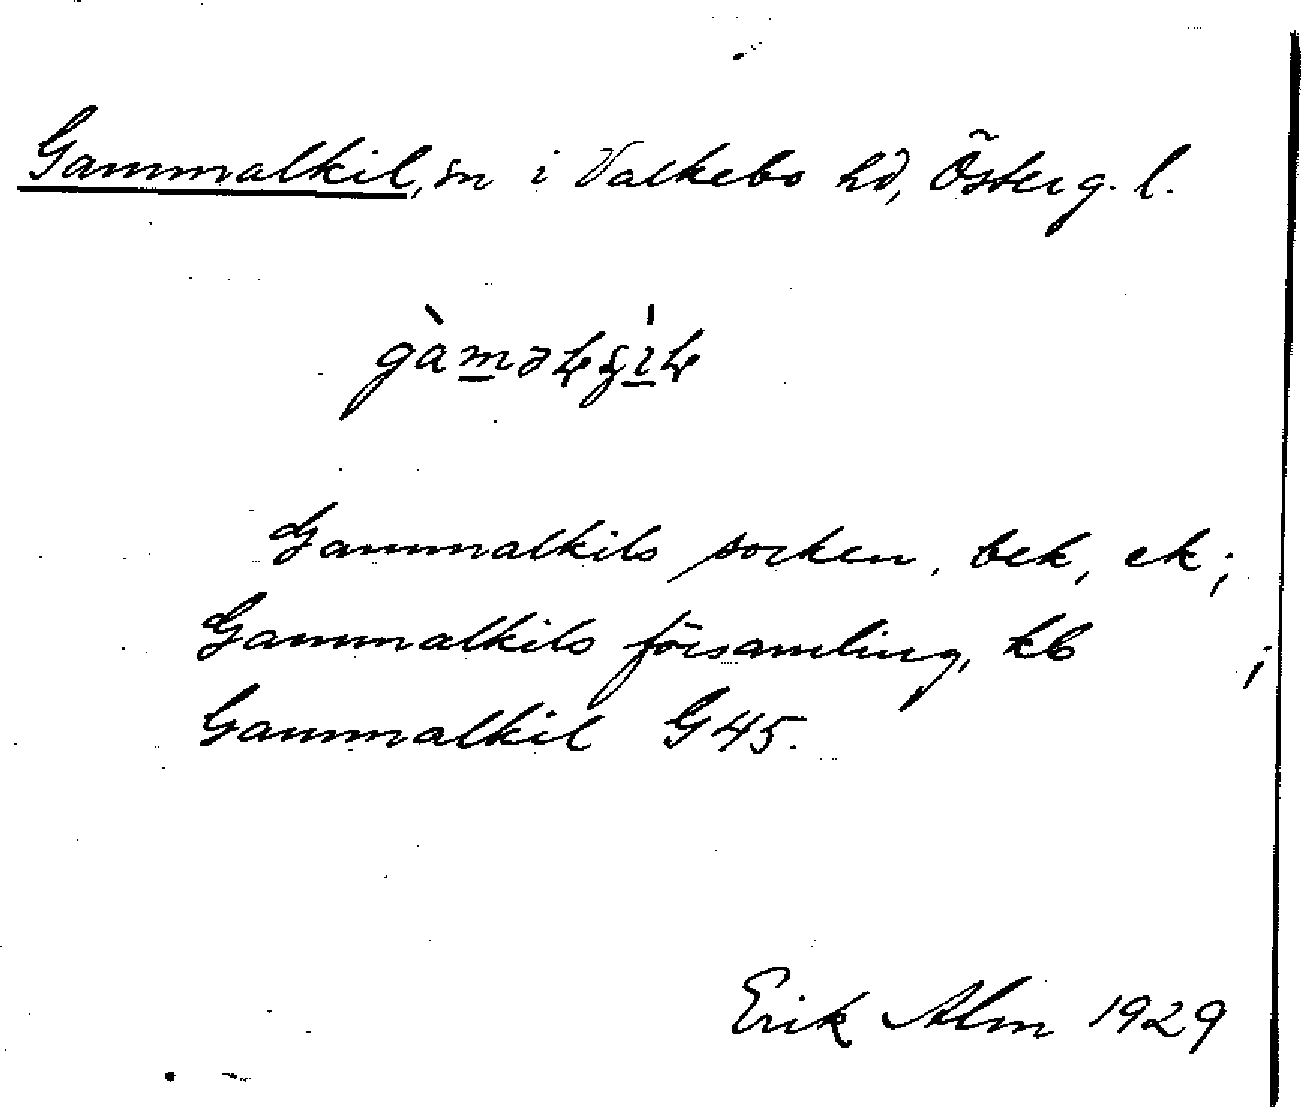 Gammalkil, sn i Valkebo hd, Österg. l.
Gammalkils socken, bek, ek;
Gammalkils församling, kb ;
Gammalkil G45.
Erik Alm 1929